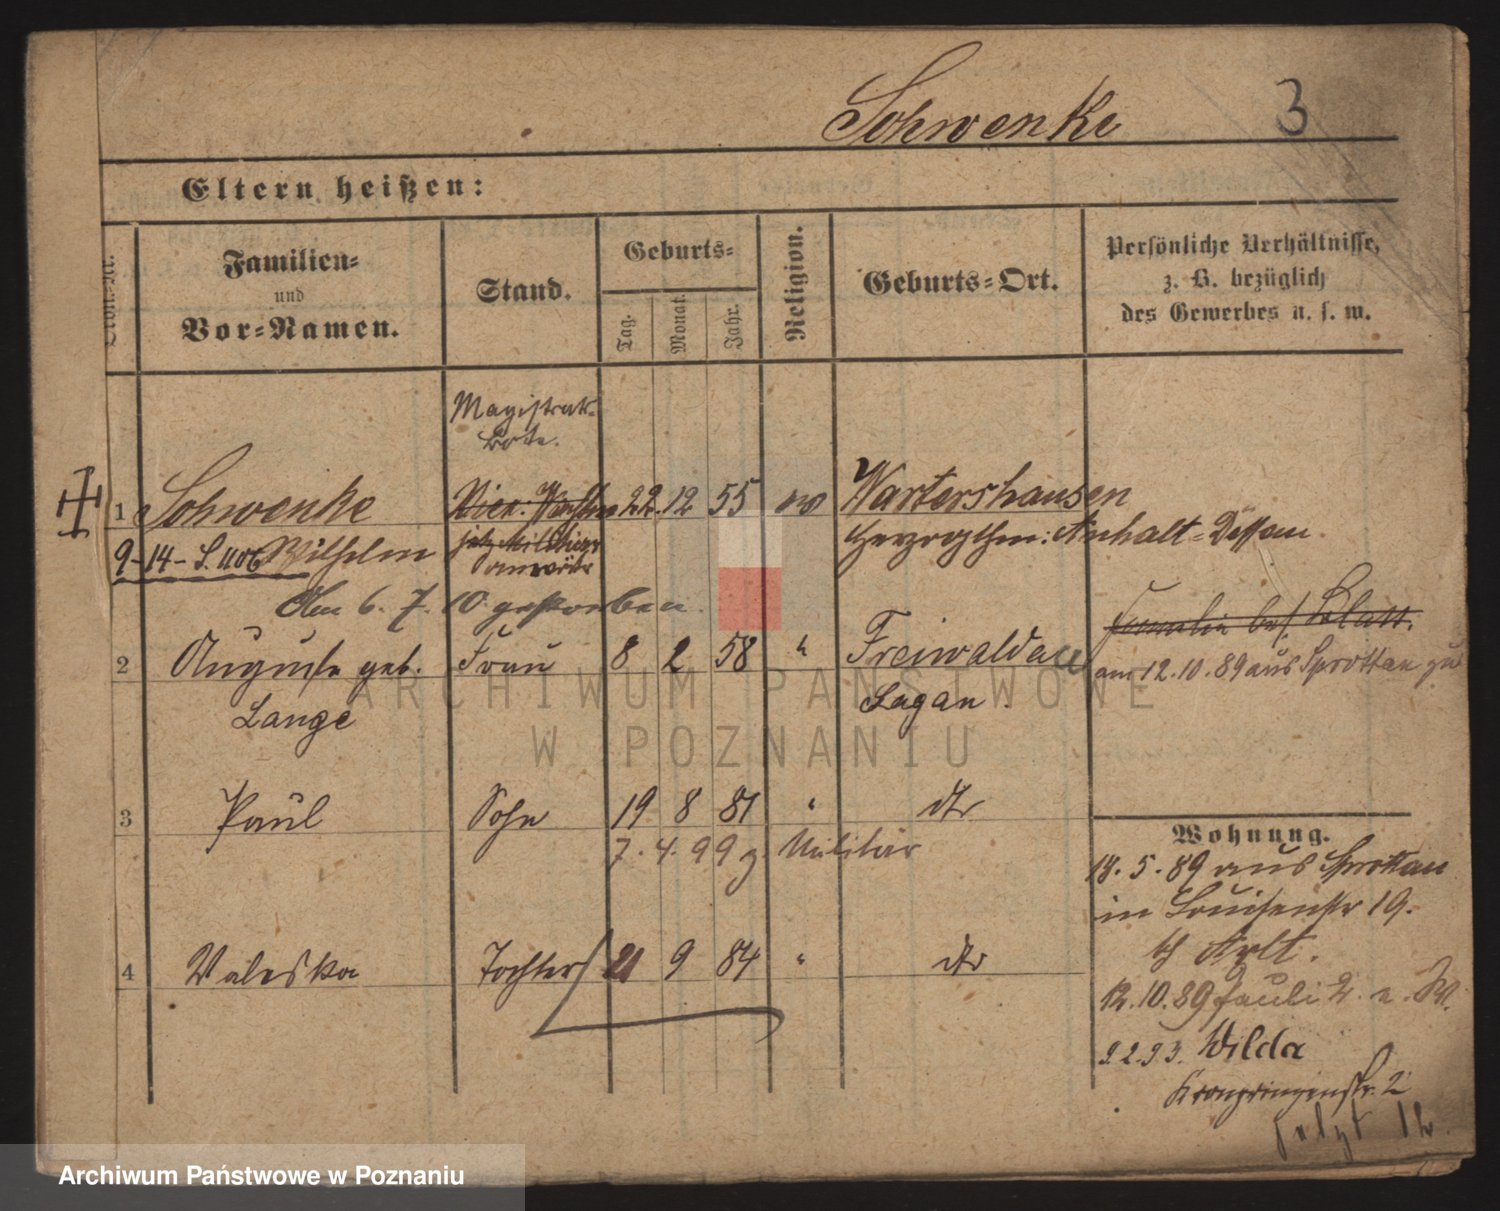 Schwenke 3
Eltern heißen:
Familien=
und
Vor=Namen.
Stand.
Geburts=
Tag.
Monat.
Jahr.
Religion.
Geburts=Ort.
Persönliche Verhältnisse,
z. B. bezüglich
des Gewerbes u. s. w.
Magistrats-
bote.
1 Schwenke 22. 12 55 ev Wartershausen
9-14- Wilhelm
jetz. Militär
anwärter
Herzogthm: Anhalt=Dessau
Am 6. 7. 10 gestorben.
Familie bes. Blatt.
2 Auguste geb. Frau 8 2 58 " Freiwaldau
Lange
Sagan.
am 12.10.89 aus Sprottau zu
3 Paul Sohn 19 8 81 " dto
7. 4. 99 z. Militär
4 Valeska Tochter 21 9 84 " dto
Wohnung.
18. 5. 89 aus Sprottau
in Louisenstr 19.
b/ Arlt.
12.10.89 Pauli 2.
9.2.93. Wilda
Kronprinzenstr. 2
jetzt 12
ARCHIWUM PAŃSTWOWE
W POZNANIU
Archiwum Państwowe w Poznaniu